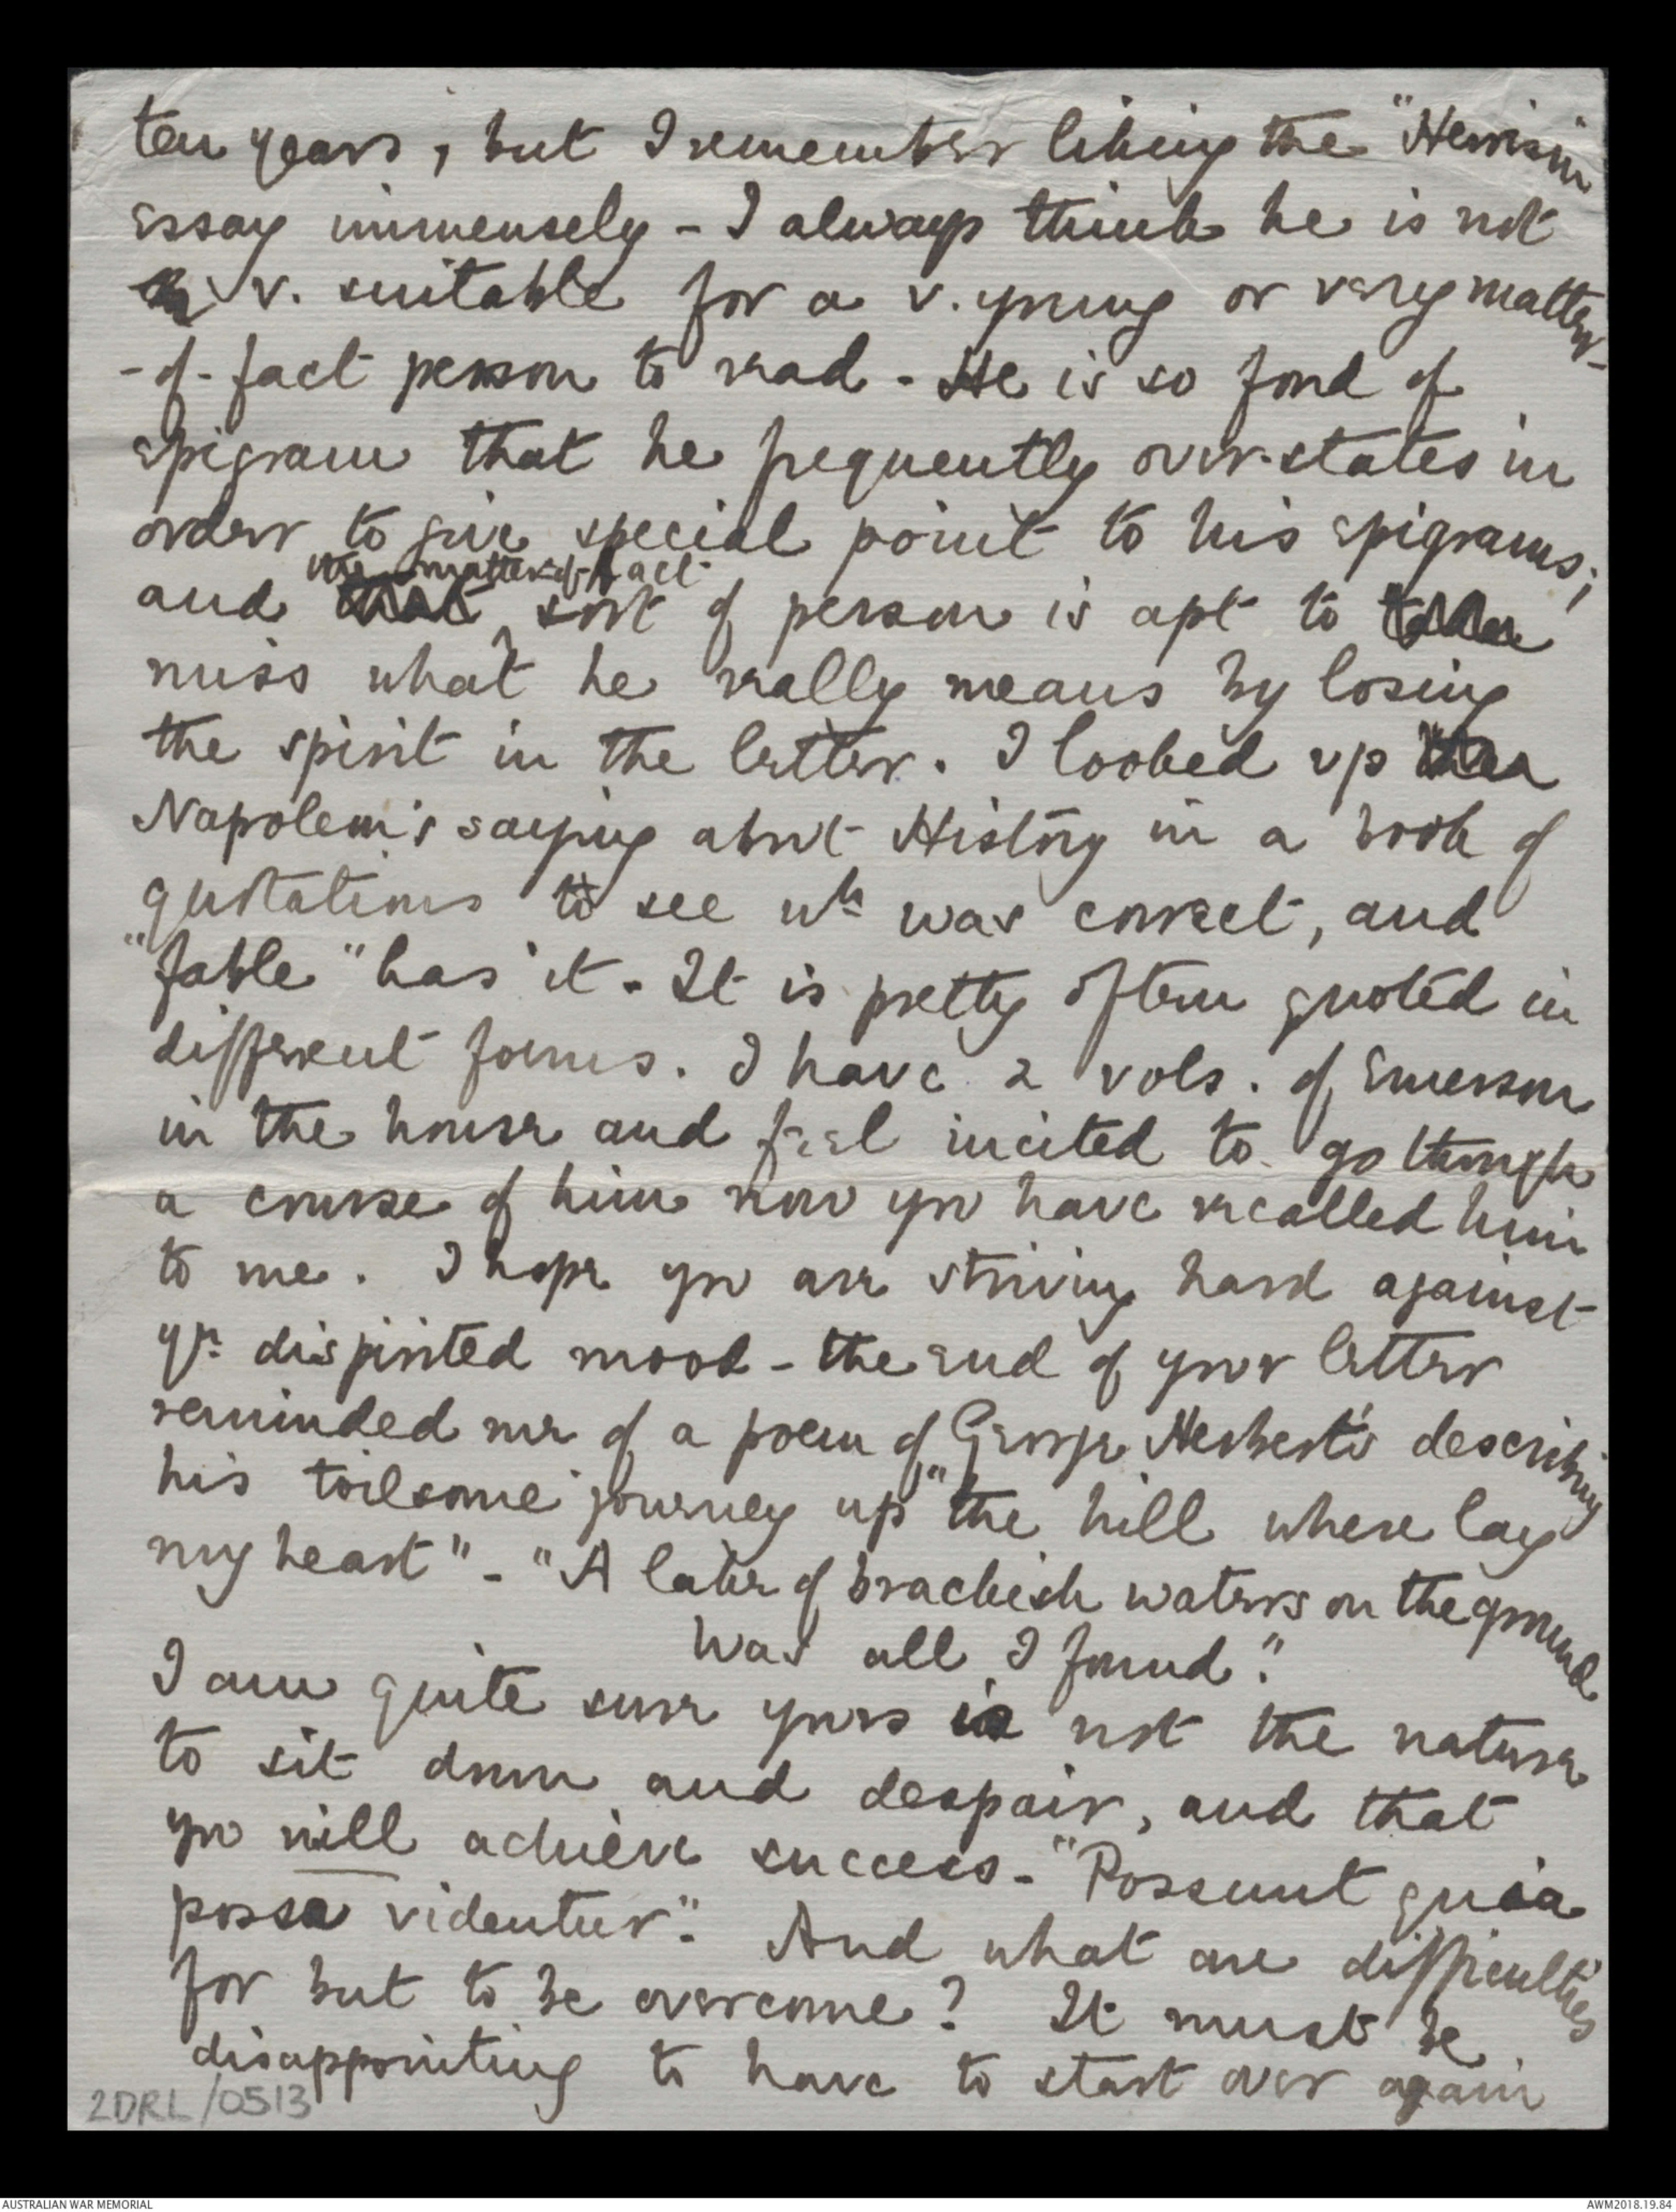 ten years, but I remember liking the "Heroism
essay immensely - I always think he is not
v. suitable for a v. young or very matter-
-of-fact person to read - He is so fond of
epigram that he frequently over-states in
order to give special point to his epigrams;
the matter-of-fact
and that sort of person is apt to take
miss what he really means by losing
the spirit in the letter. I looked up
Napoleon's saying about History in a book of
quotations to see wh was correct, and
"fable" has it - It is pretty often quoted in
different forms. I have 2 vols. of Emerson
in the house and feel incited to go through
a course of him now you have recalled him
to me. I hope you are striving hard against
yr. dispirited mood - the end of your letter
reminded me of a poem of George Herbert's describing
his toilsome journey up "the hill where lay
my heart" - "A lake of brackish waters on the ground
Was all I found."
I am quite sure yours is not the nature
to sit down and despair, and that
you will achieve success - "Possunt quia
posse videntur". And what are difficulties
for but to be overcome? It must be
disappointing to have to start over again
2DRL/0513
AUSTRALIAN WAR MEMORIAL
AWM2018.19.84